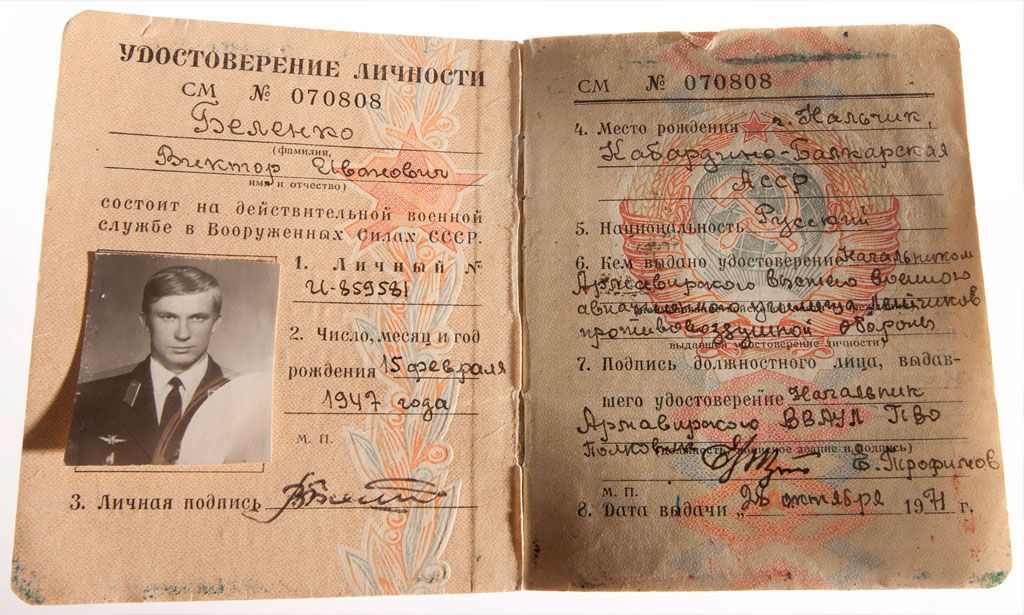 УДОСТОВЕРЕНИЕ ЛИЧНОСТИ
СМ № 070808
Беленко
(фамилия,
Виктор Иванович
имя и отчество)
состоит на действительной военной
службе в Вооруженных Силах СССР.
1. Личный №
И-859581
2. Число, месяц и год
рождения 15 февраля
1947 года
М. П.
3. Личная подпись
СМ № 070808
4. Место рождения г. Нальчик,
Кабардино-Балкарская
АССР
5. Национальность Русский
6. Кем выдано удостоверение Начальником
Армавирского высшего военного
авиационного училища летчиков
противовоздушной обороны
выдавшей удостоверение личности)
7. Подпись должностного лица, выдав-
шего удостоверение Начальник
Армавирского ВВАУЛ ПВО
Полковник Е. Трофимов
(должность, воинское звание и подпись)
М. П.
8. Дата выдачи „28 октября 1971 г.